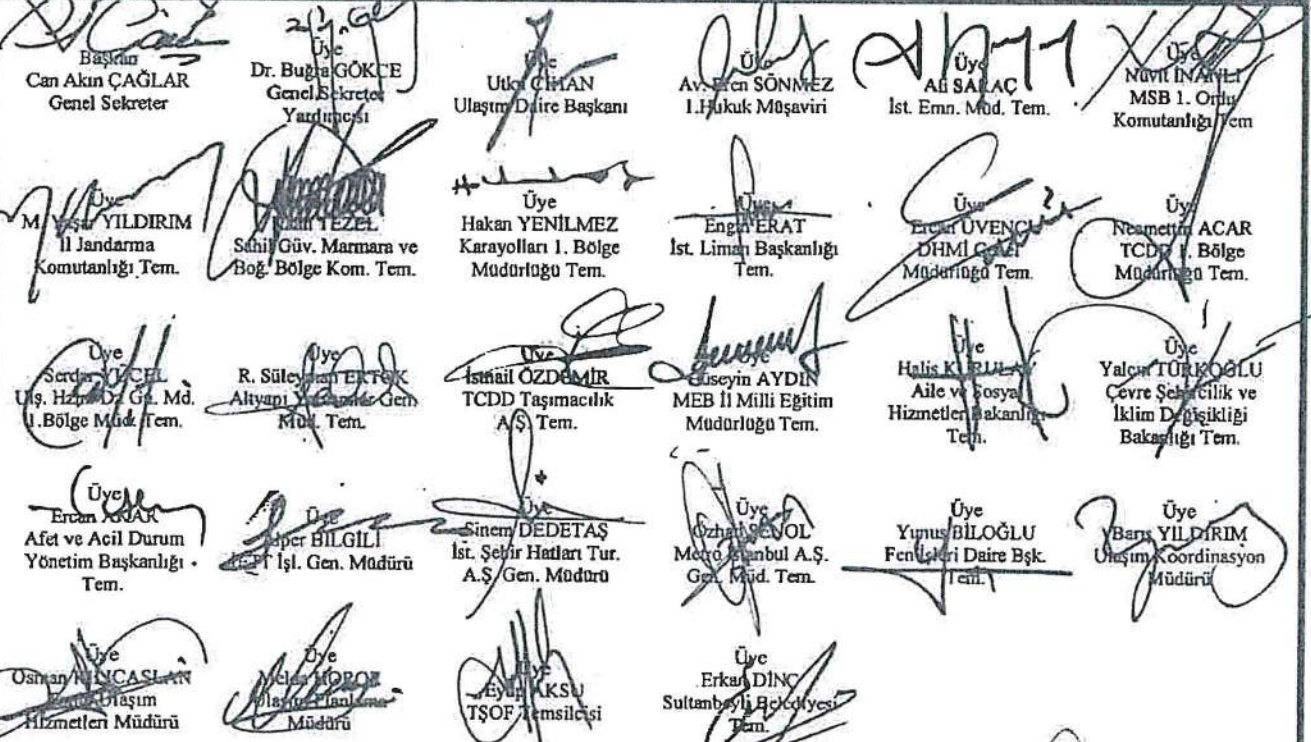 Başkan
Can Akın ÇAĞLAR
Genel Sekreter
Üye
Dr. Buğra GÖKÇE
Genel Sekreter
Yardımcısı
Üye
Utku CİHAN
Ulaşım Daire Başkanı
Üye
Av. Eren SÖNMEZ
1.Hukuk Müşaviri
Üye
Ali SARAÇ
İst. Emn. Müd. Tem.
Üye
Nüvit İNANLI
MSB 1. Ordu
Komutanlığı Tem
Üye
M. Yaşar YILDIRIM
İl Jandarma
Komutanlığı Tem.
TEZEL
Sahil Güv. Marmara ve
Boğ. Bölge Kom. Tem.
Üye
Hakan YENİLMEZ
Karayolları 1. Bölge
Müdürlüğü Tem.
Üye
Engin ERAT
İst. Liman Başkanlığı
Tem.
Üye
Ercan ÜVENÇ
DHMİ
Müdürlüğü Tem.
Üye
Necmettin ACAR
TCDD 1. Bölge
Müdürlüğü Tem.
Üye
Serdar YÜCEL
Ulş. Hzm. Dz. Gn. Md.
1.Bölge Müd. Tem.
Üye
R. Süleyman
Altyapı Gen
Müd. Tem.
Üye
İsmail ÖZDEMİR
TCDD Taşımacılık
A.Ş. Tem.
Üye
Hüseyin AYDIN
MEB İl Milli Eğitim
Müdürlüğü Tem.
Üye
Halis
Aile ve Sosyal
Hizmetler Bakanlığı
Tem.
Üye
Yalçın TÜRKOĞLU
Çevre Şehircilik ve
İklim Değişikliği
Bakanlığı Tem.
Üye
Ercan
Afet ve Acil Durum
Yönetim Başkanlığı
Tem.
Üye
Alper BİLGİLİ
İETT İşl. Gen. Müdürü
Üye
Sinem DEDETAŞ
İst. Şehir Hatları Tur.
A.Ş. Gen. Müdürü
Üye
Özhan ŞENOL
Metro İstanbul A.Ş.
Gen. Müd. Tem.
Üye
Yunus BİLOĞLU
Fen İşleri Daire Bşk.
Tem.
Üye
Barış YILDIRIM
Ulaşım Koordinasyon
Müdürü
Üye
Osman
Ulaşım
Hizmetleri Müdürü
Üye
Melda HOROZ
Ulaşım Planlama
Müdürü
Üye
Eyüp AKSU
TŞOF Temsilcisi
Üye
Erkan DİNÇ
Sultanbeyli Belediyesi
Tem.